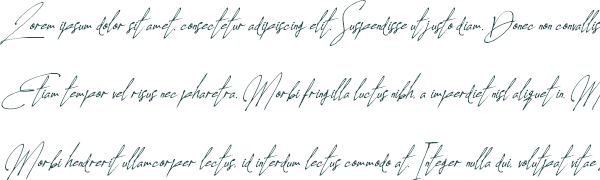 Lorem ipsum dolor sit amet, consectetur adipiscing elit. Suspendisse ut justo diam. Donec non convallis
Etiam tempor vel risus nec pharetra. Morbi fringilla luctus nibh, a imperdiet nisl aliquet in. M
Morbi hendrerit ullamcorper lectus, id interdum lectus commodo at. Integer nulla dui, volutpat vitae